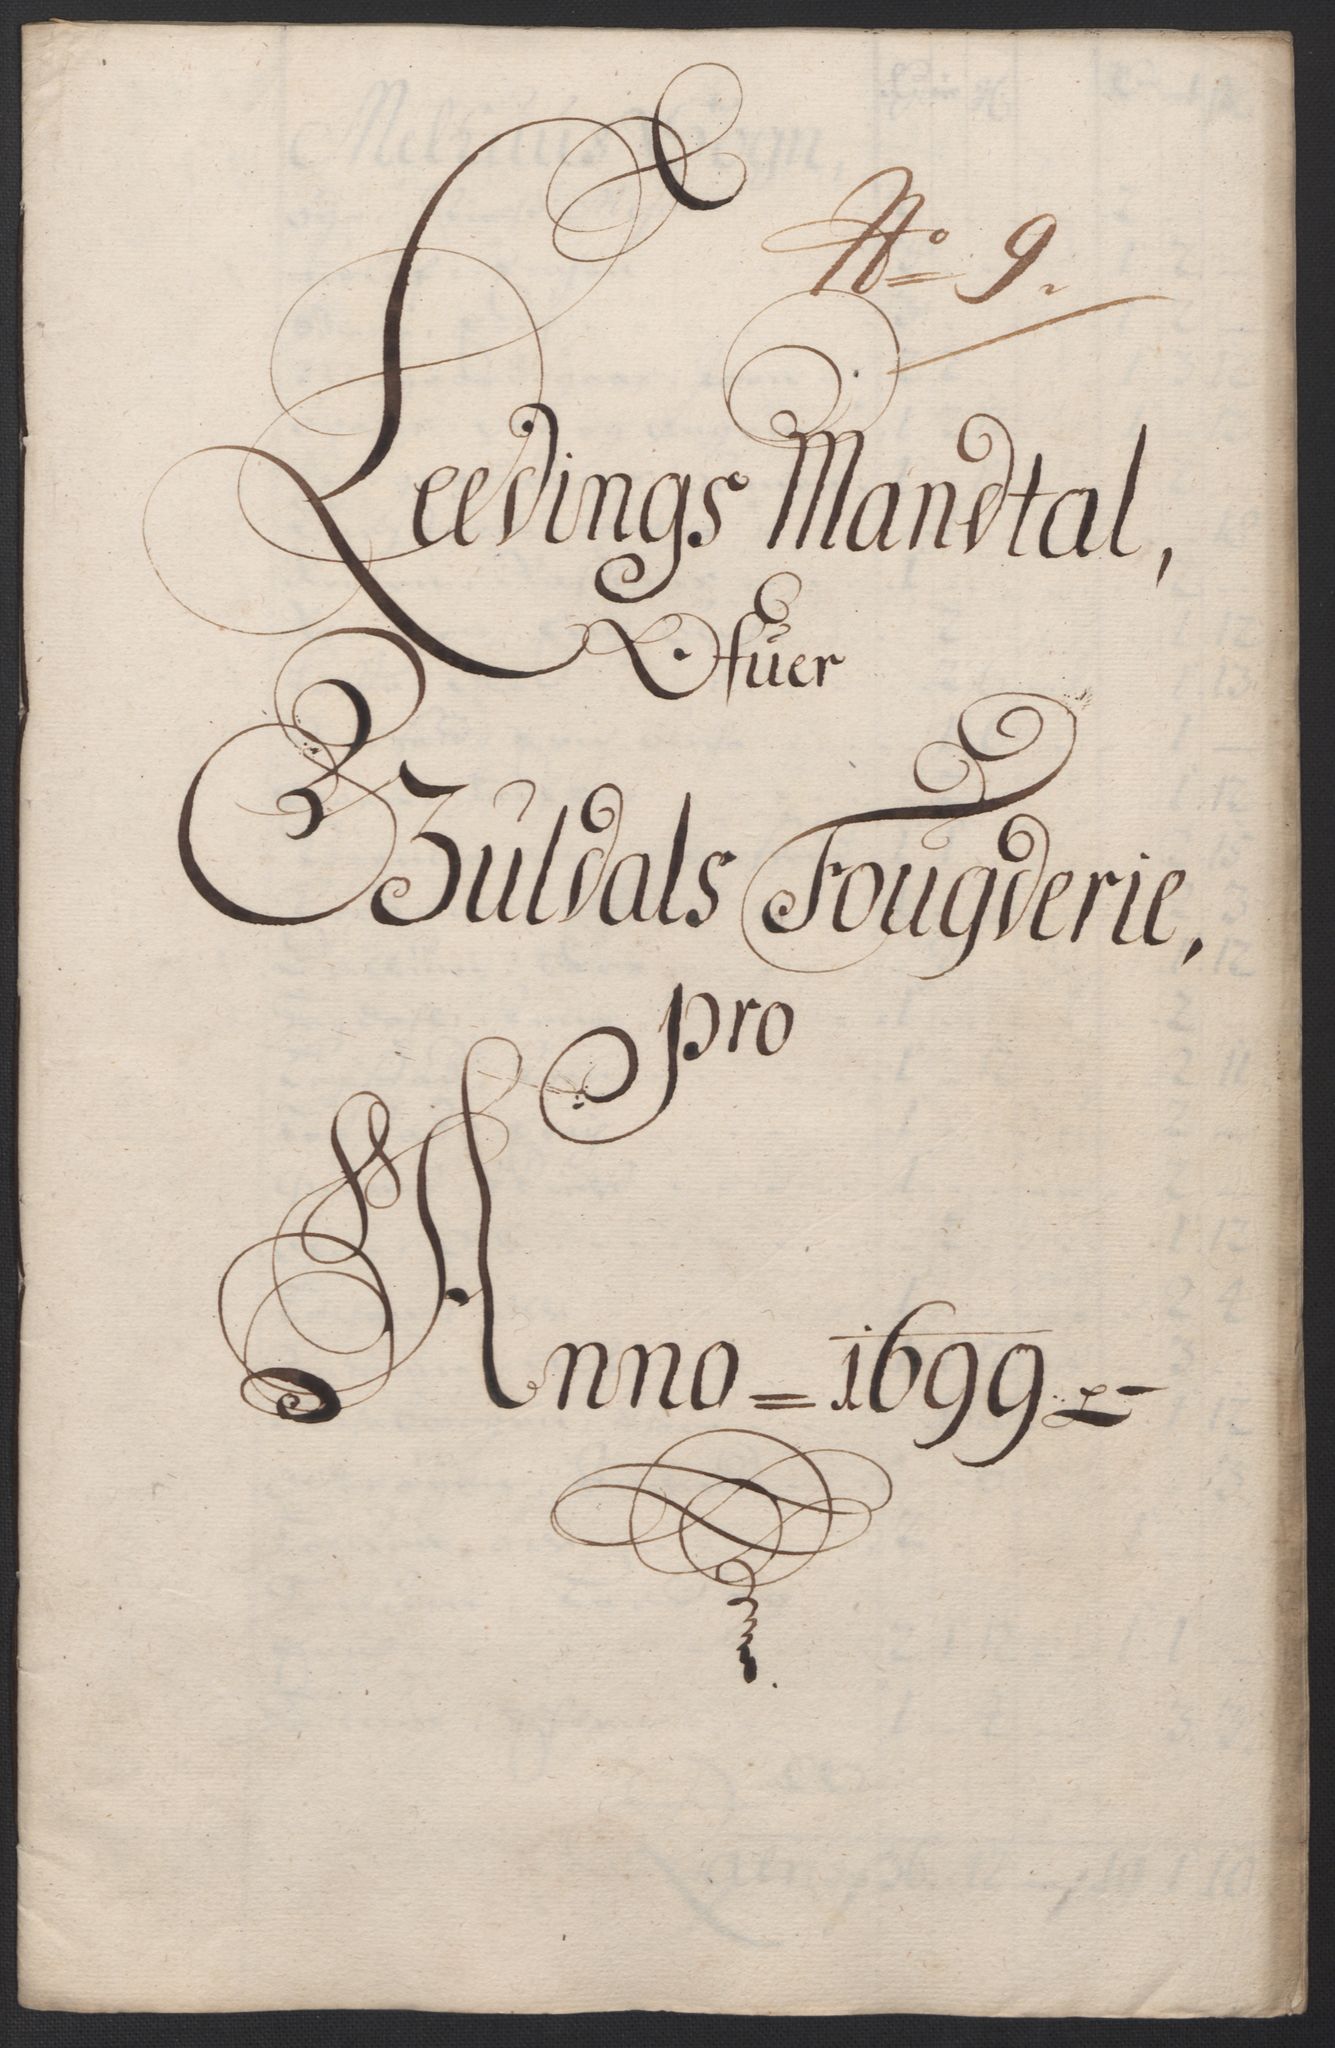 No 9.
Leedings Mandtal,
Ofuer
Guldals Fougderie,
pro
Anno = 1699